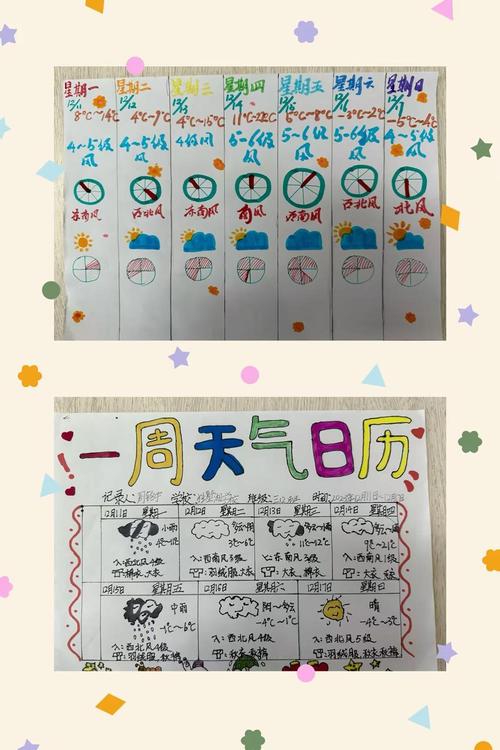 星期一 星期二 星期三 星期四 星期五 星期六 星期日
12/11 12/12 12/13 12/15 12/16 12/17
4℃~9℃ 4℃~15℃ 5℃~8℃ -3℃~2℃ -5℃~4℃
4~5级风 4~5级风 4级风 5~6级风 5~6级风 5~6级风 4~5级风
东南风 西北风 东南风 南风 西南风 西北风 北风
一周天气日历
记录人: 学校: 班级: 时间:
12月11日 星期一 12月12日 星期二 12月13日 星期三 12月14日 星期四
小雨 多云~阴 多云~阴 多云~阴
3℃~6℃ 11℃~12℃ 9℃~21℃
西北风4级 西南风3级 东南风3级 西南风1级
棉衣,大衣 羽绒服,大衣 大衣,棉衣 大衣
12月15日 星期五 12月16日 星期六 12月17日 星期日
中雨 阴~多云 晴
-1℃~6℃ -4℃~1℃ -4℃~3℃
西北风4级 西北风4级 西北风5级
羽绒服,秋裤 秋衣,秋裤 羽绒服,秋衣秋裤